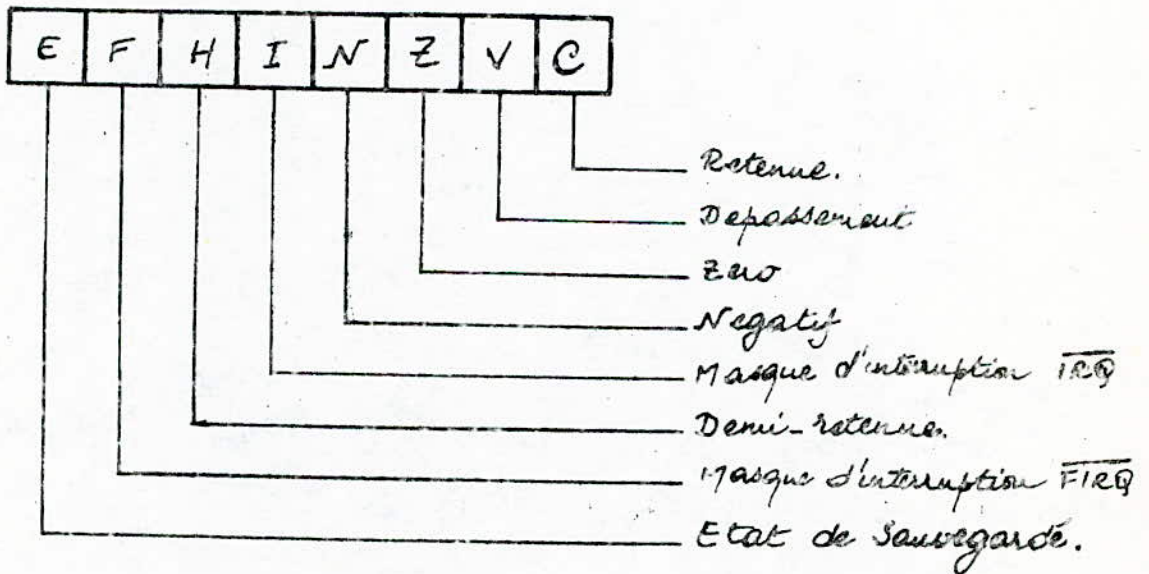 E F H I N Z V C
Retenue.
Depassement
Zero
Negatif
Masque d'interruption I̅R̅Q̅
Demi-retenue.
Masque d'interruption F̅I̅R̅Q̅
Etat de Sauvegarde.